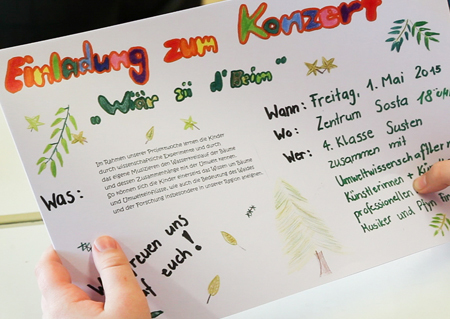 Einladung zum Konzert
"Wiär sii d'Beim"
Was:
Im Rahmen unserer Projektwoche lernen die Kinder
durch wissenschaftliche Experimente und durch
das eigene Musizieren den Wasserkreislauf der Bäume
und dessen Zusammenhänge mit der Umwelt kennen.
So können sich die Kinder einerseits das Wissen um Bäume
und Umwelteinflüsse, wie auch die Bedeutung des Waldes
und der Forschung insbesondere in unserer Region aneignen.
freuen uns
auf euch!
Wann: Freitag, 1. Mai 2015
Wo: Zentrum Sosta 18
Wer: 4. Klasse Susten
zusammen mit
Umweltwissenschaftler
Künstlerinnen +
professionellen
Musiker und Pfyn